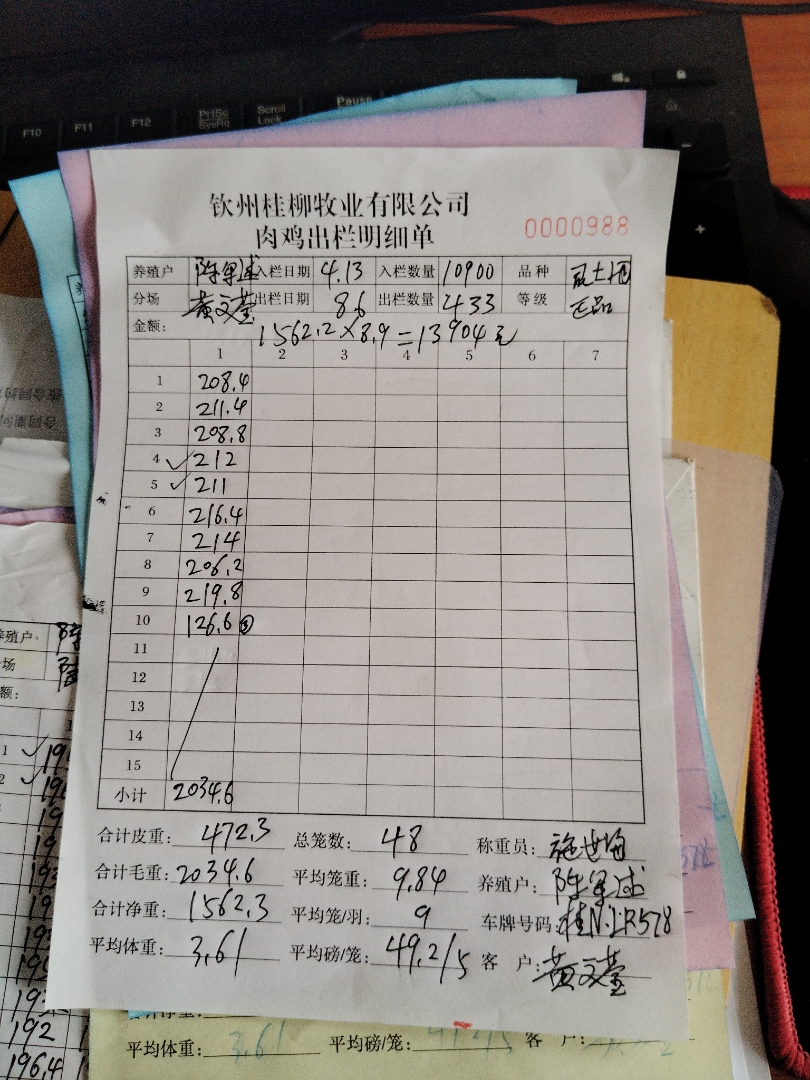 钦州桂柳牧业有限公司
肉鸡出栏明细单
0000988
养殖户 入栏日期 4.13 入栏数量 10900 品种
分场 黄文莹 出栏日期 8.6 出栏数量 433 等级 正品
金额: 1562.2×8.9=13904元
1 2 3 4 5 6 7
1 208.4
2 211.4
3 208.8
4 ✓212
5 ✓211
6 216.4
7 214
8 206.2
9 219.8
10 126.6 ③
11
12
13
14
15
小计 2034.6
合计皮重: 472.3 总笼数: 48 称重员:
合计毛重: 2034.6 平均笼重: 9.84 养殖户:
合计净重: 1562.3 平均笼/羽: 9 车牌号码:
平均体重: 3.61 平均磅/笼: 49.2/5 客 户: 黄文莹
平均体重: 3.61 平均磅/笼: 客 户:
养殖户:
192
196.4
F10 F11 F12 PrtSc SysRq Scroll Lock Pause